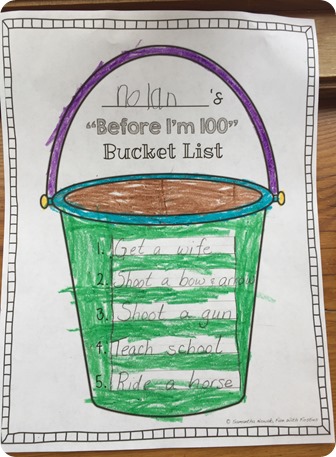 nolan's
"Before I'm 100"
Bucket List
1. Get a wife
2. Shoot a bow & arrow
3. Shoot a gun
4. Teach school
5. Ride a horse
© Samantha Kinard, Fun With Firsties